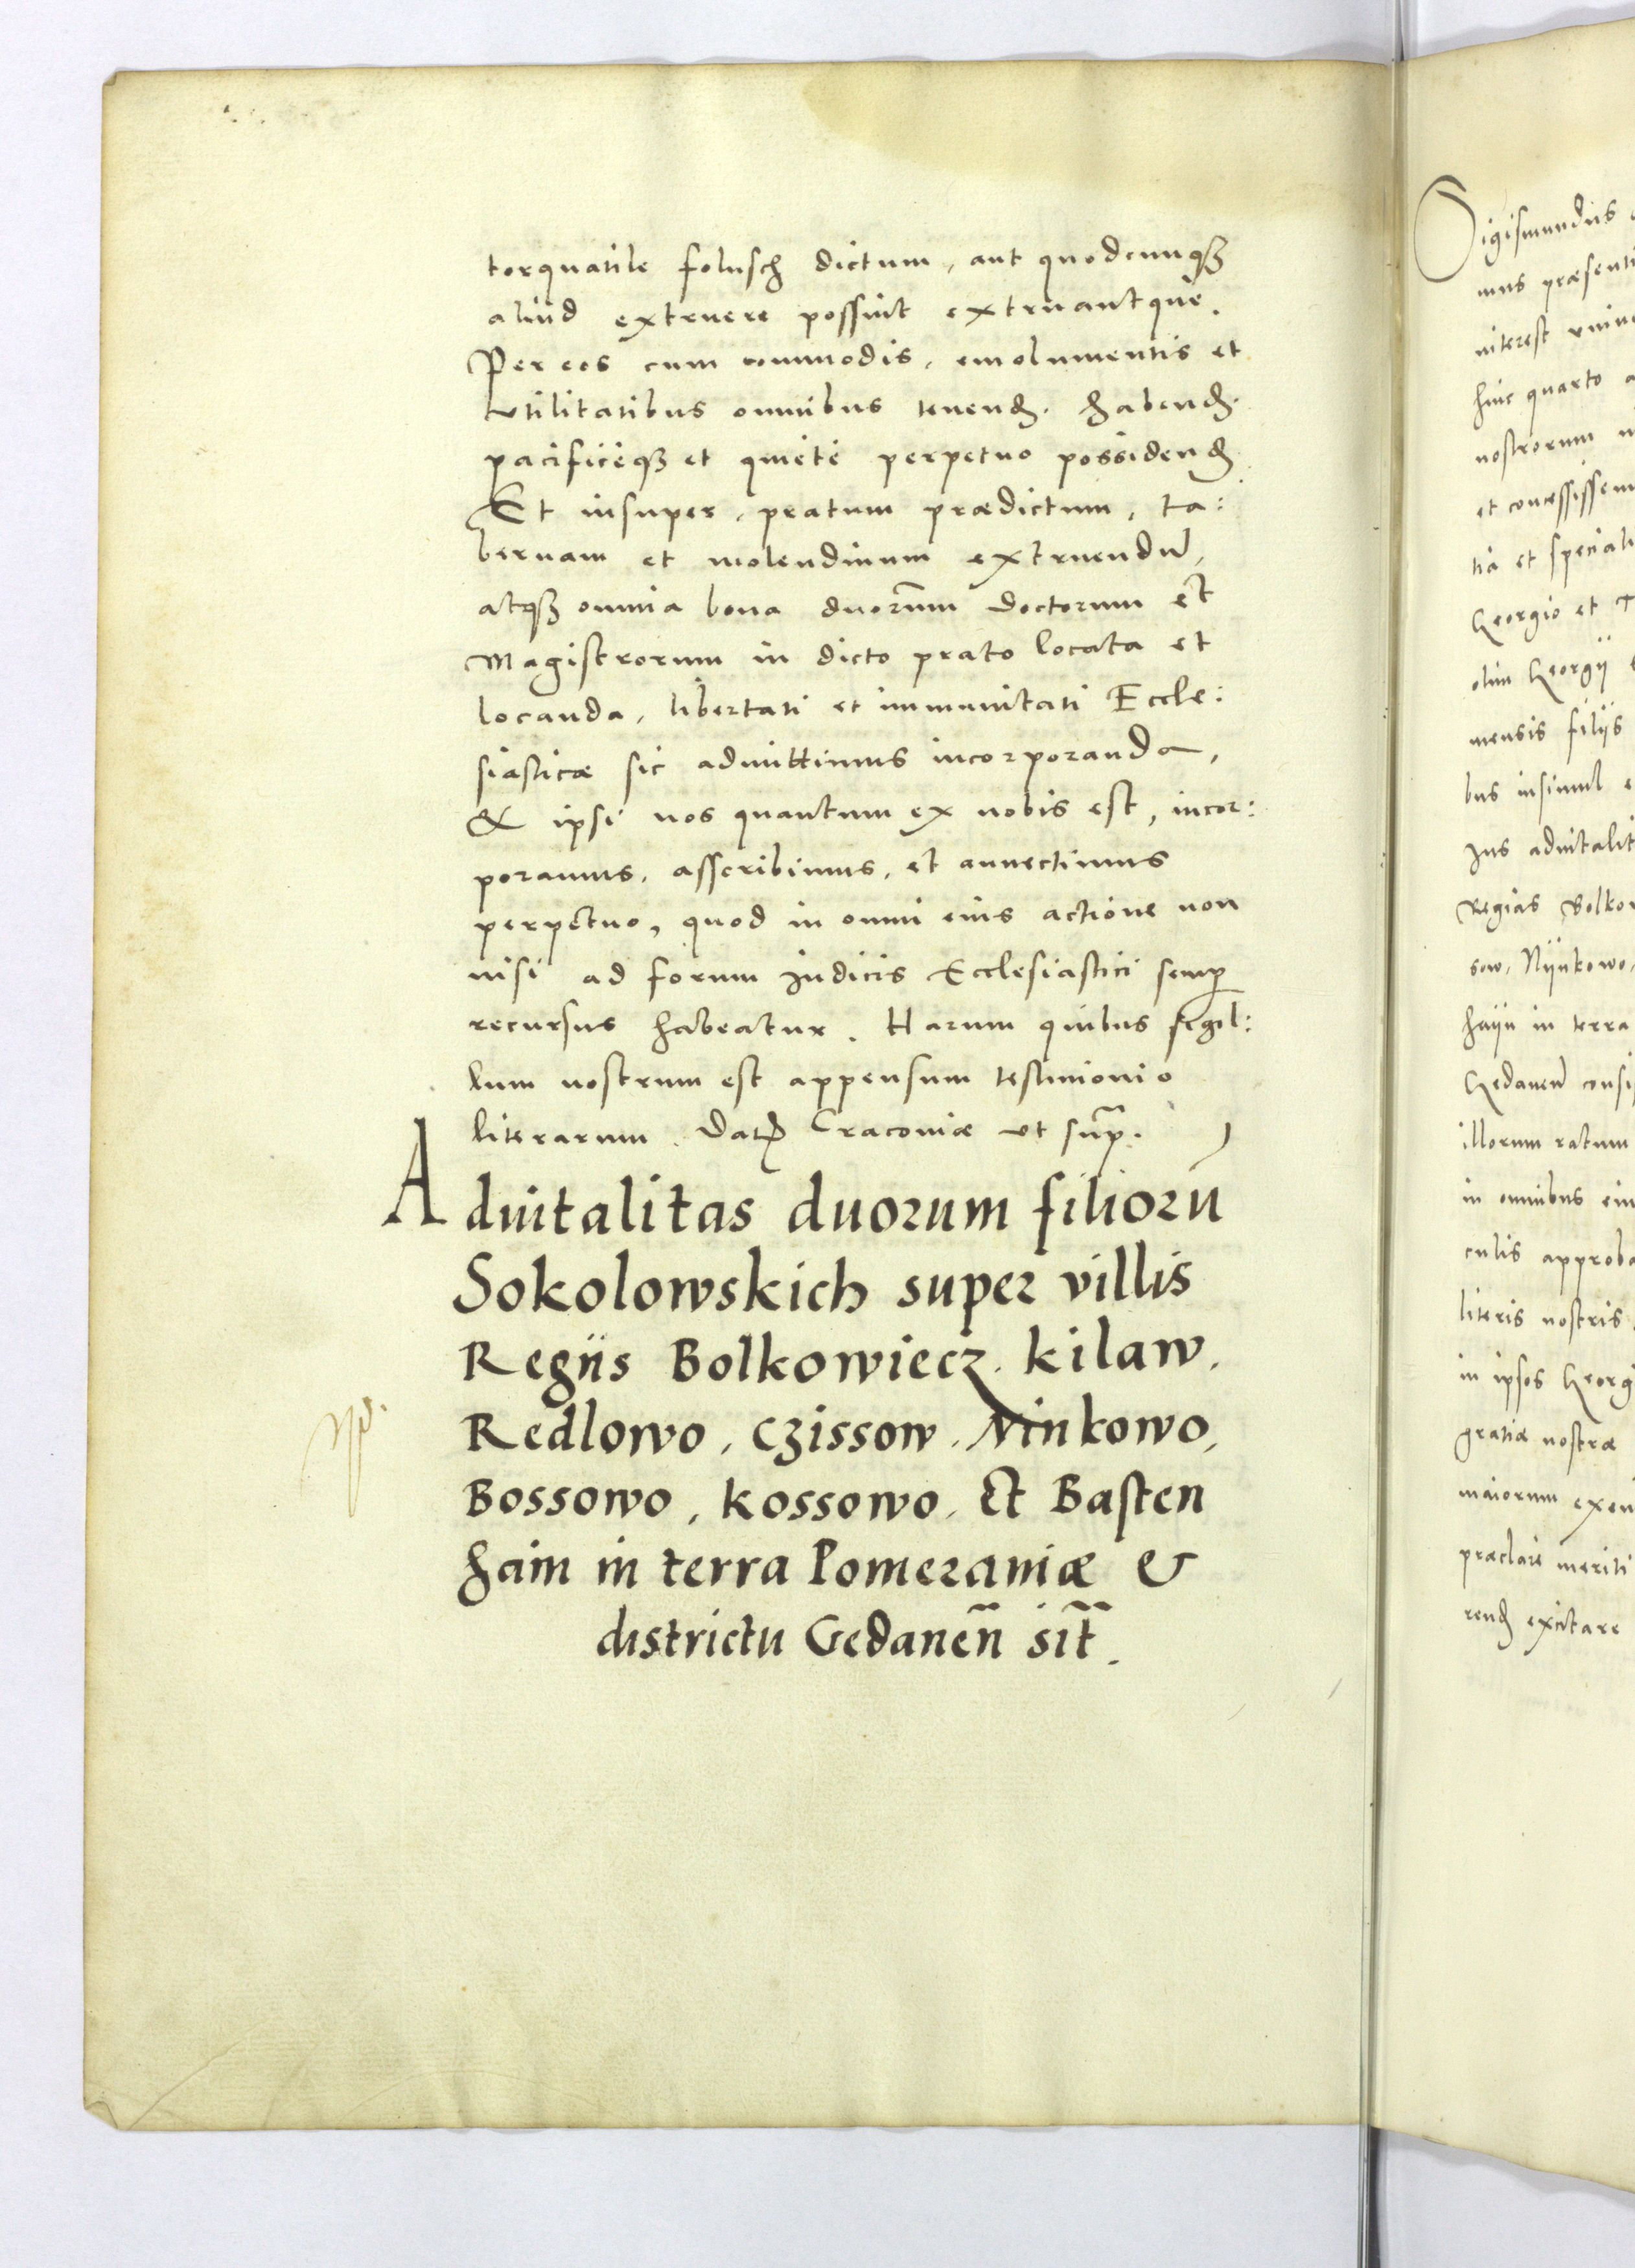 torquatile folusch dictum, aut quodcunqꝫ
aliud extruere possint extruantque.
Per eos cum commodis, emolumentis et
vtilitatibus omnibus tenenđ. habenđ.
pacificeqꝫ et quiete perpetuo possidenđ.
Et insuper, pratum prædictum, ta:
bernam et molendinum extruendū,
atqꝫ omnia bona duorum doctorum et
Magistrorum in dicto prato locata et
locanda, libertati et immunitati Eccle:
siasticæ sic admittimus incorporanda,
& ipsi nos quantum ex nobis est, incor:
poramus, asscribimus, et annectimus
perpetuo, quod in omni eius actione non
nisi ad forum Judicis Ecclesiastici semꝑ
recursus habeatur. Harum quibus sigil:
lum nostrum est appensum testimonio
literarum. Dat̃ Cracoviæ vt sup̃.
Aduitalitas duorum filiorū
Sokolowskich super villis
Regiis Bolkowiecz. kilaw.
Redlowo, Czissow. Ninkowo,
Bossowo, kossowo. Et Basten
haim in terra Pomeraniæ &
districtu Gedaneñ sit̃.
Sigismundus
mus præsenti
interest vniue
huic quarto a
nostrorum
et concessissem
tia et speciali
Georgio et
olim Georgij
mensis filijs
bus insimul
Jus aduitalit
Regias Bolkow
sow, Nijnkowo,
haijn in terra
Gedaneñ consi
illorum ratum
in omnibus eiu
culis approba
literis nostris
in ipsos Georgi
gratiæ nostræ
maiorum exem
præclare meriti
renđ excitare